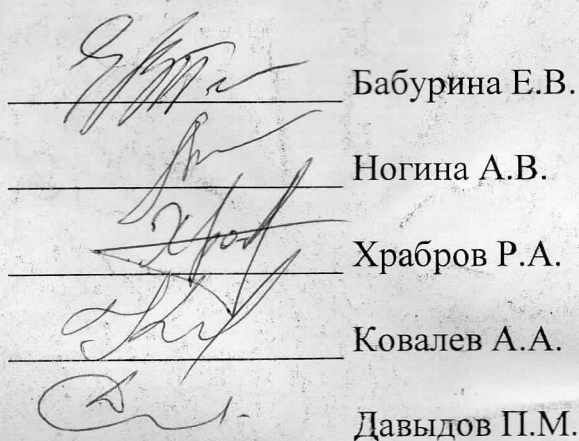 Бабурина Е.В.
Ногина А.В.
Храбров Р.А.
Ковалев А.А.
Давыдов П.М.